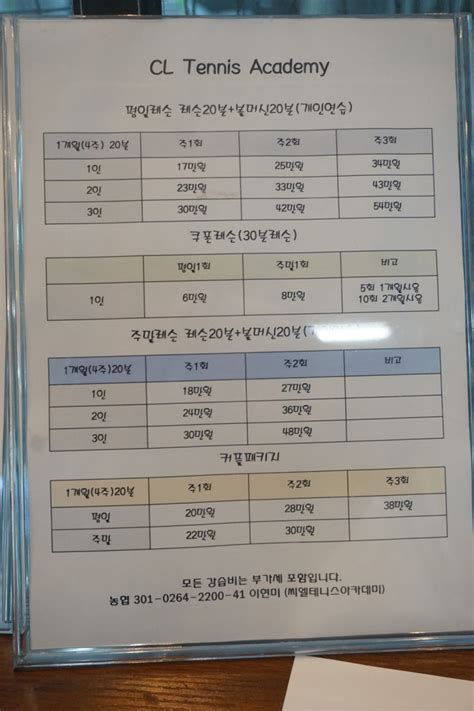 CL Tennis Academy
평일레슨 레슨20분+볼머신20분(개인연습)
1개월(4주) 20분 주1회 주2회 주3회
1인 17만원 25만원 34만원
2인 23만원 33만원 43만원
3인 30만원 42만원 54만원
쿠폰레슨(30분레슨)
평일1회 주말1회 비고
1인 6만원 8만원 5회 1개월사용
10회 2개월사용
주말레슨 레슨20분+볼머신20분
1개월(4주)20분 주1회 주2회 비고
1인 18만원 27만원
2인 24만원 36만원
3인 30만원 48만원
커플패키지
1개월(4주)20분 주1회 주2회 주3회
평일 20만원 28만원 38만원
주말 22만원 30만원
모든 강습비는 부가세 포함입니다.
농협 301-0264-2200-41 이연미 (씨엘테니스아카데미)